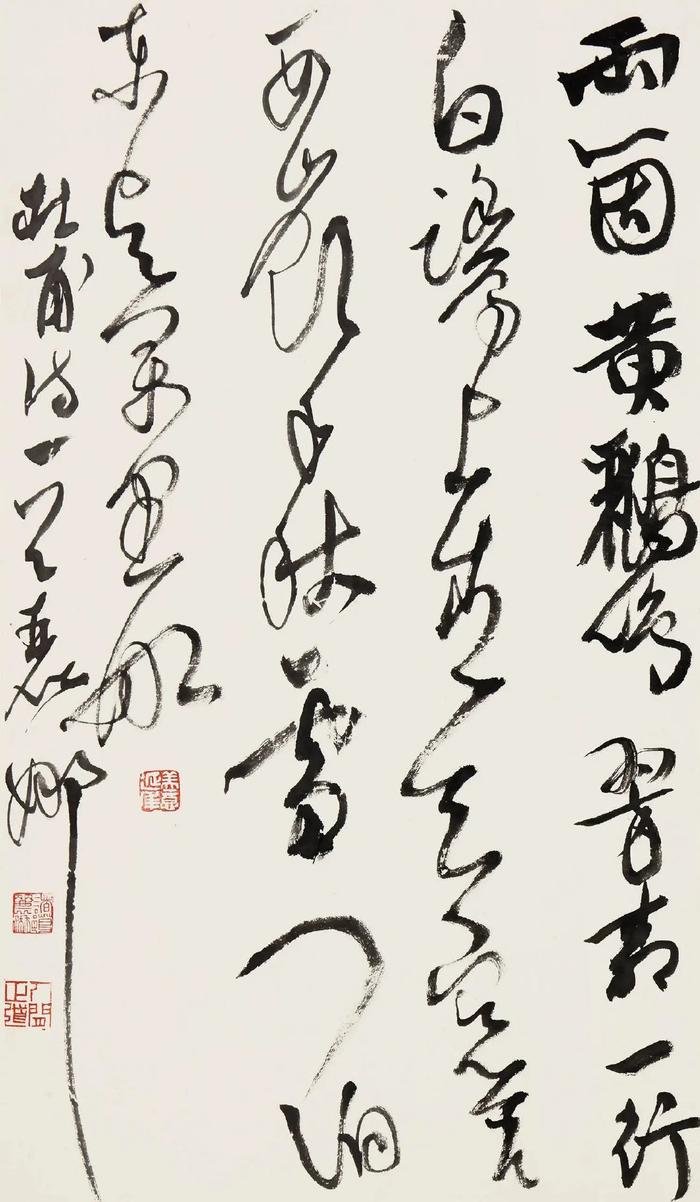 兩箇黃鸝鳴翠柳一行
白鷺上青天窗含
西嶺千秋雪門泊
東吳萬里船
杜甫詩一首
美意延年